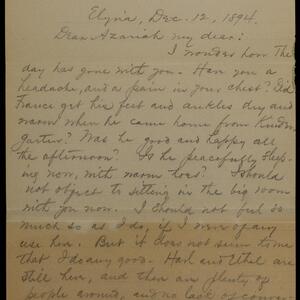 Elyria, Dec. 12, 1894.
Dear Azariah my dear:
I wonder how the
day has gone with you. Have you a
headache, and a pain in your chest? Did
France get his feet and ankles dry and
warm when he came home from Kinder
garten? Was he good and happy all
the afternoon? Is he peacefully sleep
ing now, with warm toes? I should
not object to sitting in the big room
with you now. I should not feel so
much so as I do, if I were of any
use here. But it does not seem to me
that I do any good. Harl and Ethel are
still here, and there are plenty of
people around, and no lack of